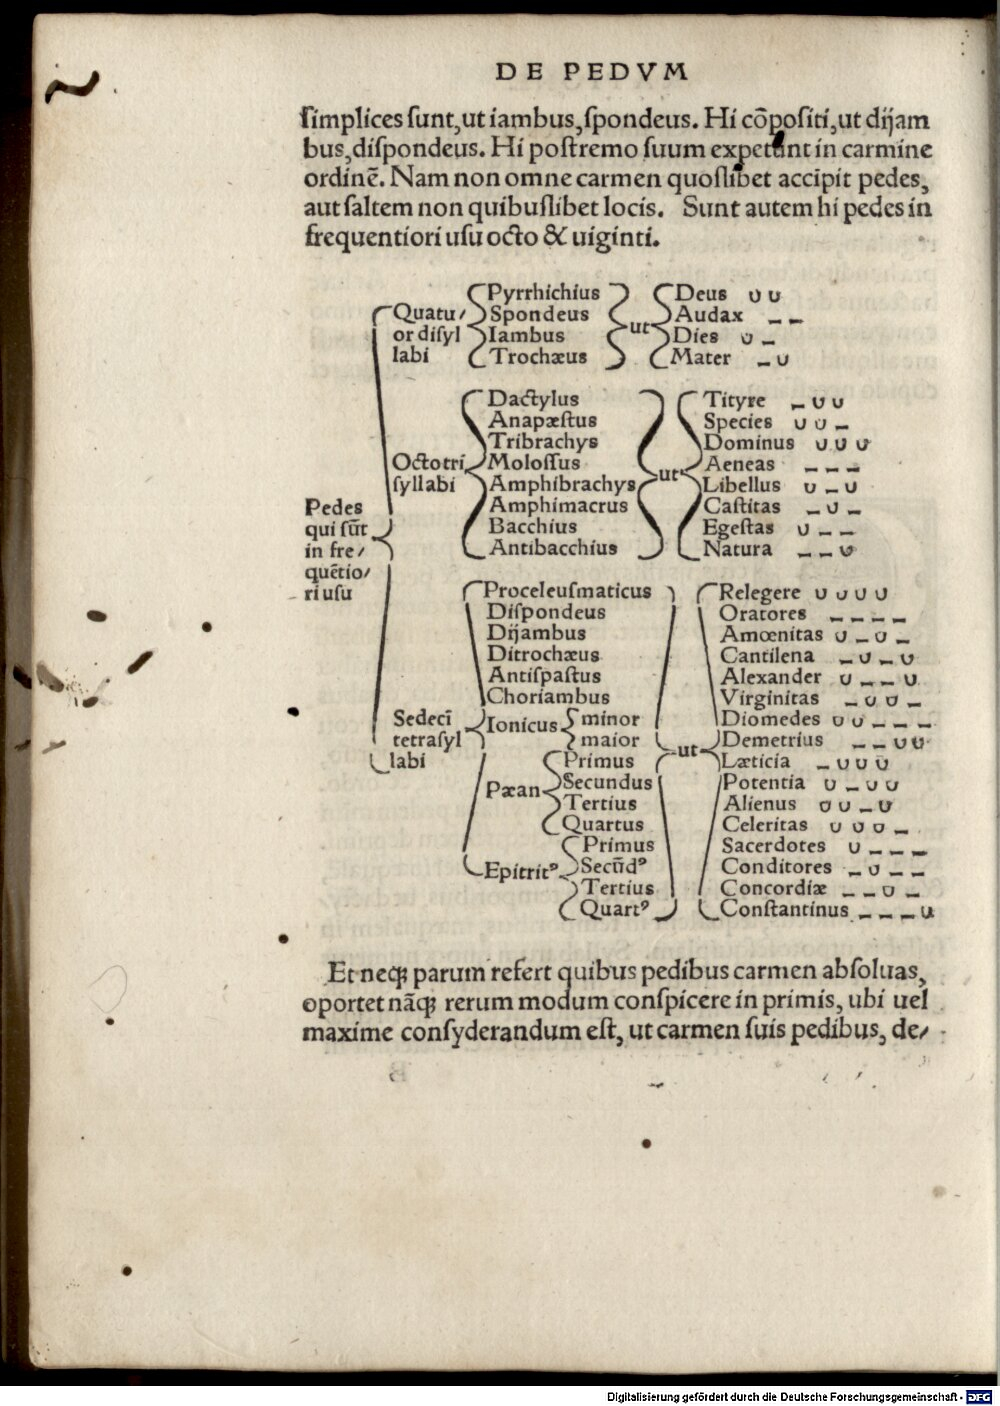 DE PEDVM
ſimplices ſunt,ut iambus,ſpondeus. Hi cōpoſiti,ut dijam
bus,diſpondeus. Hi poſtremo ſuum expetunt in carmine
ordinē. Nam non omne carmen quoſlibet accipit pedes,
aut ſaltem non quibuſlibet locis. Sunt autem hi pedes in
frequentiori uſu octo & uiginti.
Pedes
qui sūt
in fre/
quētio/
ri uſu
Quatu/
or diſyl
labi
Pyrrhichius
Spondeus
Iambus
Trochæus
ut
Deus ∪ ∪
Audax _ _
Dies ∪ _
Mater _ ∪
Octo tri
ſyllabi
Dactylus
Anapæſtus
Tribrachys
Moloſſus
Amphibrachys
Amphimacrus
Bacchius
Antibacchius
ut
Tityre _ ∪ ∪
Species ∪ ∪ _
Dominus ∪ ∪ ∪
Aeneas _ _ _
Libellus ∪ _ ∪
Caſtitas _ ∪ _
Egeſtas ∪ _ _
Natura _ _ ∪
Sedecī
tetraſyl
labi
Proceleuſmaticus
Diſpondeus
Dijambus
Ditrochæus
Antiſpaſtus
Choriambus
Ionicus
minor
maior
Pæan
Primus
Secundus
Tertius
Quartus
Epitritꝰ
Primus
Secūdꝰ
Tertius
Quartꝰ
ut
Relegere ∪ ∪ ∪ ∪
Oratores _ _ _ _
Amœnitas ∪ _ ∪ _
Cantilena _ ∪ _ ∪
Alexander ∪ _ _ ∪
Virginitas _ ∪ ∪ _
Diomedes ∪ ∪ _ _ _
Demetrius _ _ ∪ ∪
Læticia _ ∪ ∪ ∪
Potentia ∪ _ ∪ ∪
Alienus ∪ ∪ _ ∪
Celeritas ∪ ∪ ∪ _
Sacerdotes ∪ _ _ _
Conditores _ ∪ _ _
Concordiæ _ _ ∪ _
Conſtantinus _ _ _ ∪
Et neqꝫ parum refert quibus pedibus carmen abſoluas,
oportet nāqꝫ rerum modum conſpicere in primis, ubi uel
maxime conſyderandum eſt, ut carmen ſuis pedibus, de/
Digitalisierung gefördert durch die Deutsche Forschungsgemeinschaft - DFG